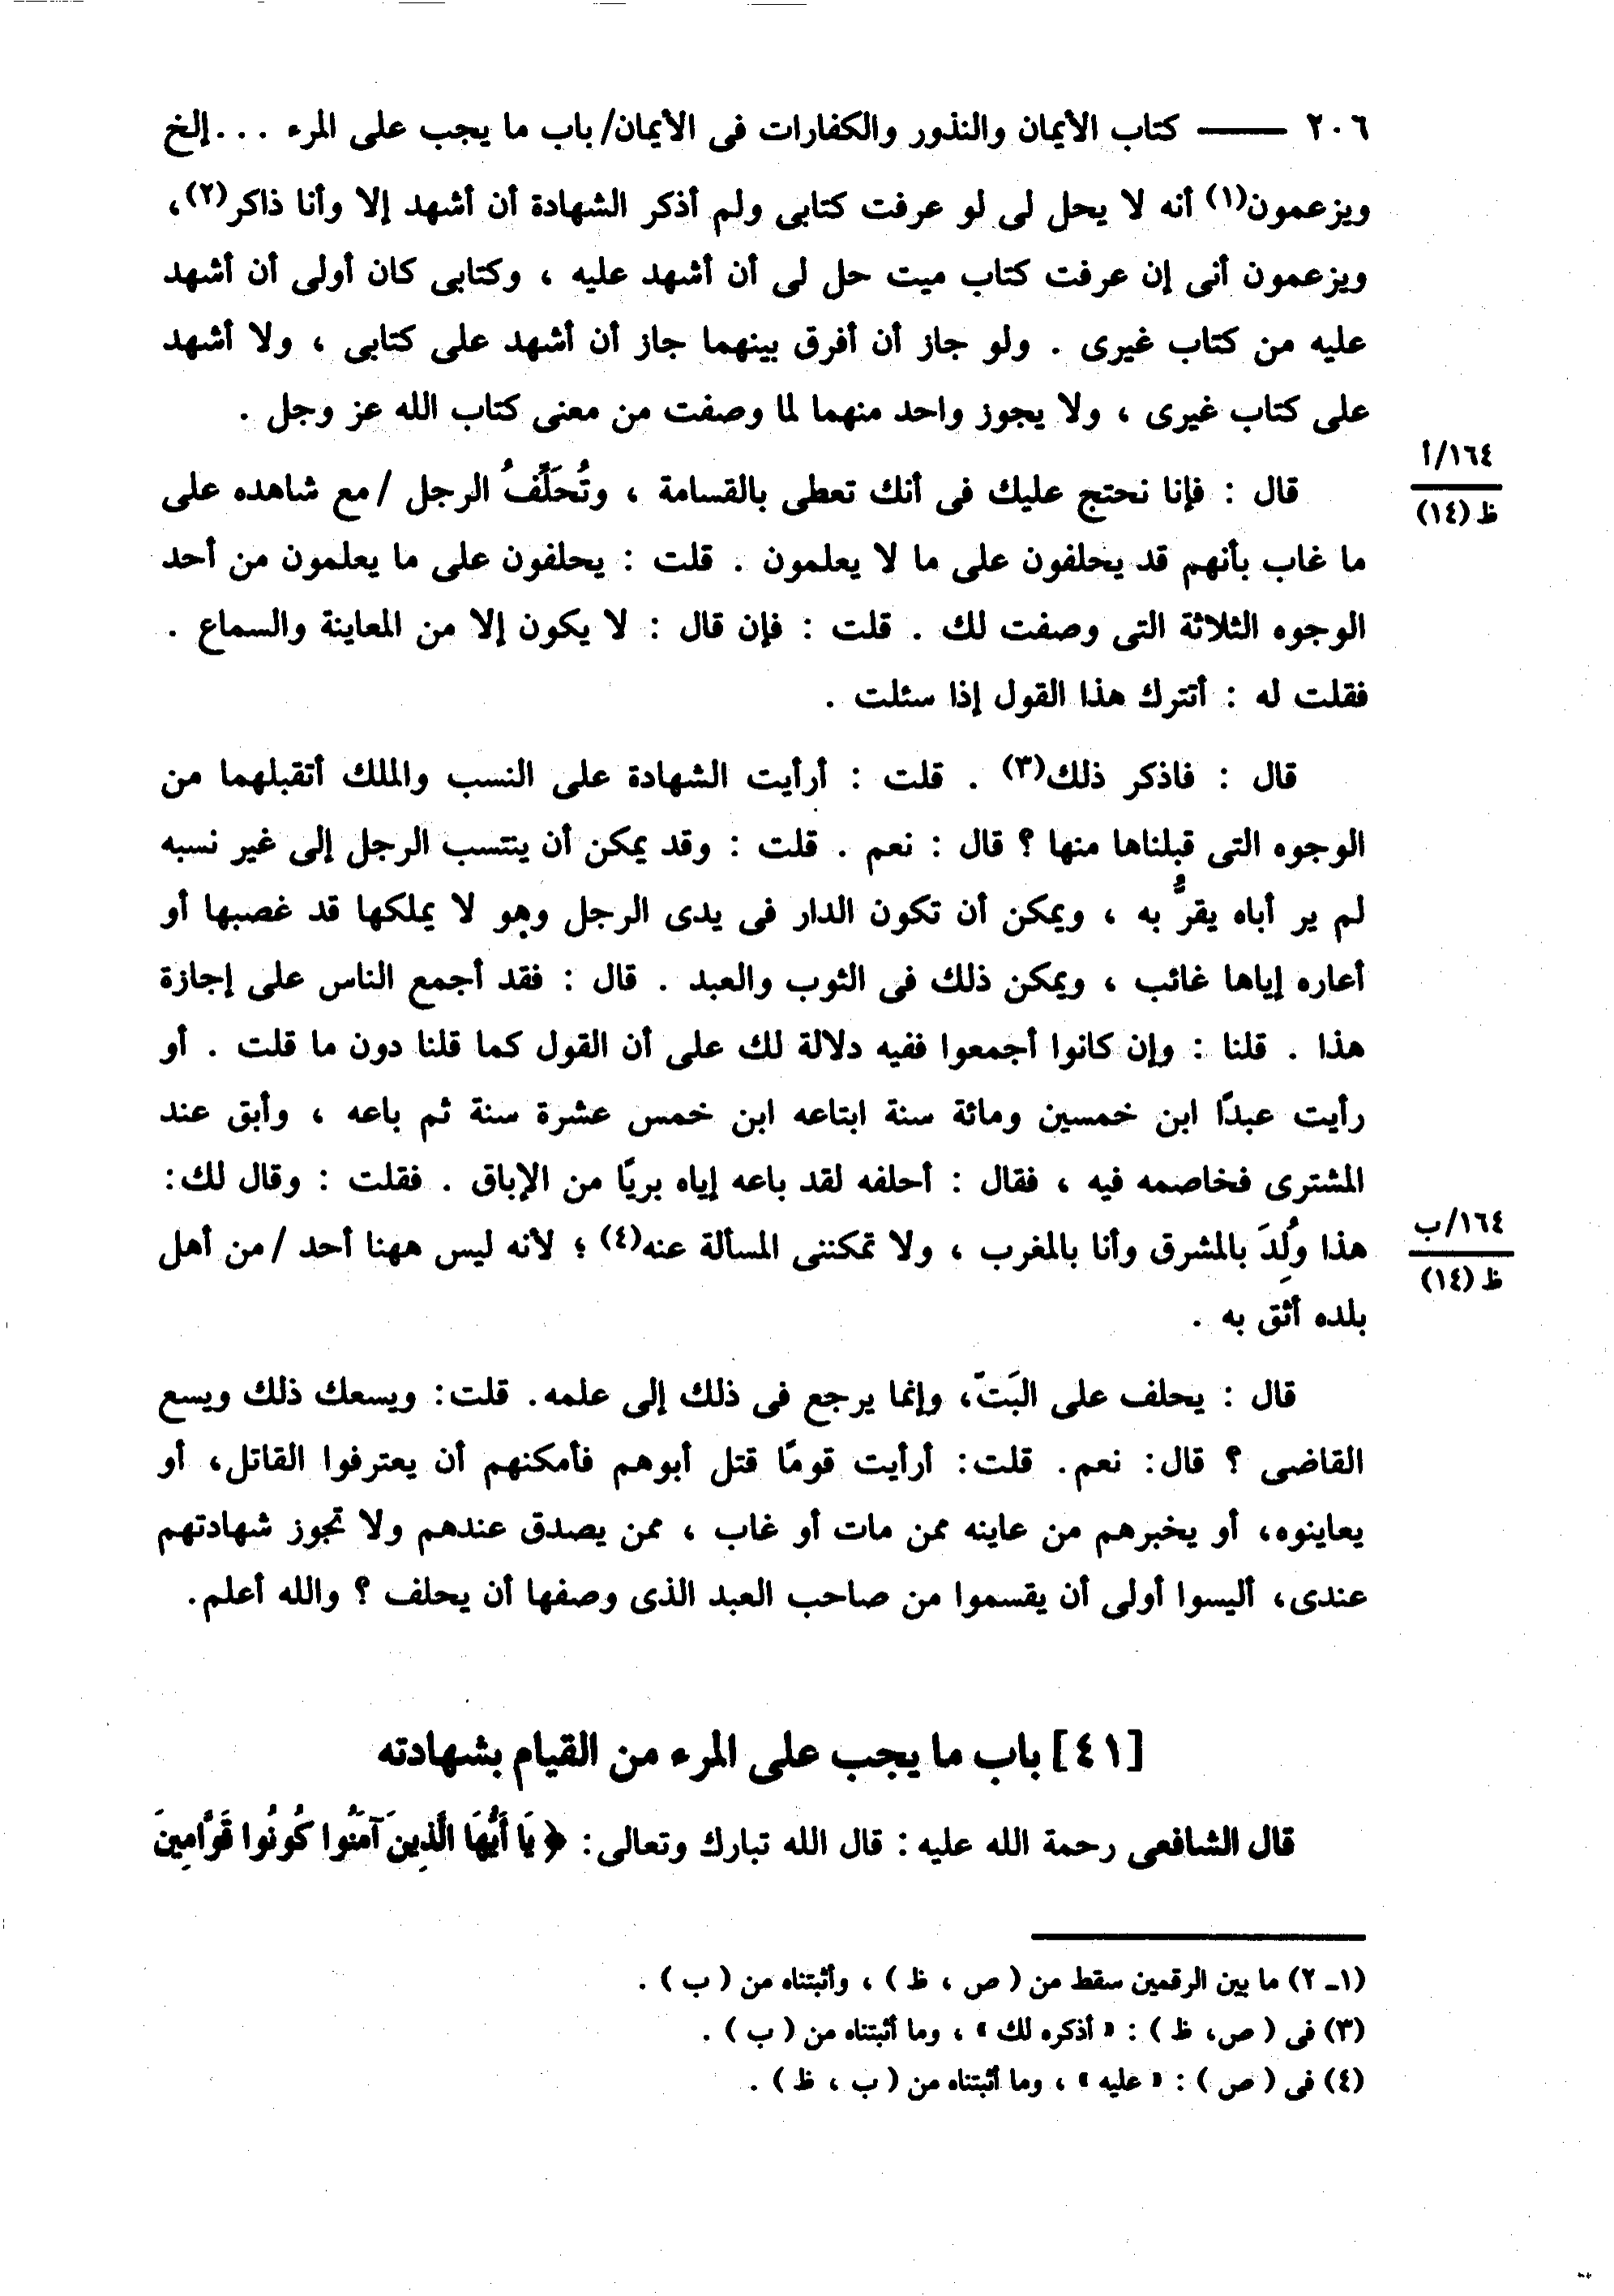 ٢٠٦ ـــــ كتاب الأيمان والنذور والكفارات فى الأيمان/ باب ما يجب على المرء ...إلخ
ويزعمون(١) أنه لا يحل لى لو عرفت كتابى ولم أذكر الشهادة أن أشهد إلا وأنا ذاكر(٢)،
ويزعمون أنى إن عرفت كتاب ميت حل لى أن أشهد عليه ، وكتابى كان أولى أن أشهد
عليه من كتاب غيرى . ولو جاز أن أفرق بينهما جاز أن أشهد على كتابى ، ولا أشهد
على كتاب غيرى ، ولا يجوز واحد منهما لما وصفت من معنى كتاب الله عز وجل .
١٦٤/أ
ظ (١٤)
قال : فإنا نحتج عليك فى أنك تعطى بالقسامة ، وتُحَلِّفُ الرجل /مع شاهده على
ما غاب بأنهم قد يحلفون على ما لا يعلمون . قلت : يحلفون على ما يعلمون من أحد
الوجوه الثلاثة التى وصفت لك . قلت : فإن قال : لا يكون إلا من المعاينة والسماع .
فقلت له : أتترك هذا القول إذا سئلت .
قال : فاذكر ذلك(٣) . قلت : أرأيت الشهادة على النسب والملك أتقبلهما من
الوجوه التى قبلناها منها ؟ قال : نعم . قلت : وقد يمكن أن ينتسب الرجل إلى غير نسبه
لم ير أباه يقرُّ به ، ويمكن أن تكون الدار فى يدى الرجل وهو لا يملكها قد غصبها أو
أعاره إياها غائب ، ويمكن ذلك فى الثوب والعبد . قال : فقد أجمع الناس على إجازة
هذا . قلنا : وإن كانوا أجمعوا ففيه دلالة لك على أن القول كما قلنا دون ما قلت . أو
رأيت عبدًا ابن خمسين ومائة سنة ابتاعه ابن خمس عشرة سنة ثم باعه ، وأبق عند
المشترى فخاصمه فيه ، فقال : أحلفه لقد باعه إياه بريًا من الإباق . فقلت : وقال لك:
١٦٤/ب
ظ (١٤)
هذا وُلِدَ بالمشرق وأنا بالمغرب ، ولا تمكننى المسألة عنه(٤) ؛ لأنه ليس ههنا أحد /من أهل
بلده أثق به .
قال : يحلف على البَتّ، وإنما يرجع فى ذلك إلى علمه. قلت: ويسعك ذلك ويسع
القاضى ؟ قال: نعم. قلت: أرأيت قومًا قتل أبوهم فأمكنهم أن يعترفوا القاتل، أو
يعاينوه، أو يخبرهم من عاينه ممن مات أو غاب ، ممن يصدق عندهم ولا تجوز شهادتهم
عندى، أليسوا أولى أن يقسموا من صاحب العبد الذى وصفها أن يحلف ؟ والله أعلم.
[٤١] باب ما يجب على المرء من القيام بشهادته
قال الشافعى رحمة الله عليه : قال الله تبارك وتعالى: ﴿ يَا أَيُّهَا الَّذِينَ آمَنُوا كُونُوا قَوَّامِينَ
(١ـ ٢) ما بين الرقمين سقط من ( ص ، ظ ) ، وأثبتناه من ( ب ) .
(٣) فى ( ص، ظ ) : « أذكره لك » ، وما أثبتناه من ( ب ) .
(٤) فى ( ص ) : « عليه » ، وما أثبتناه من ( ب ، ظ ) .